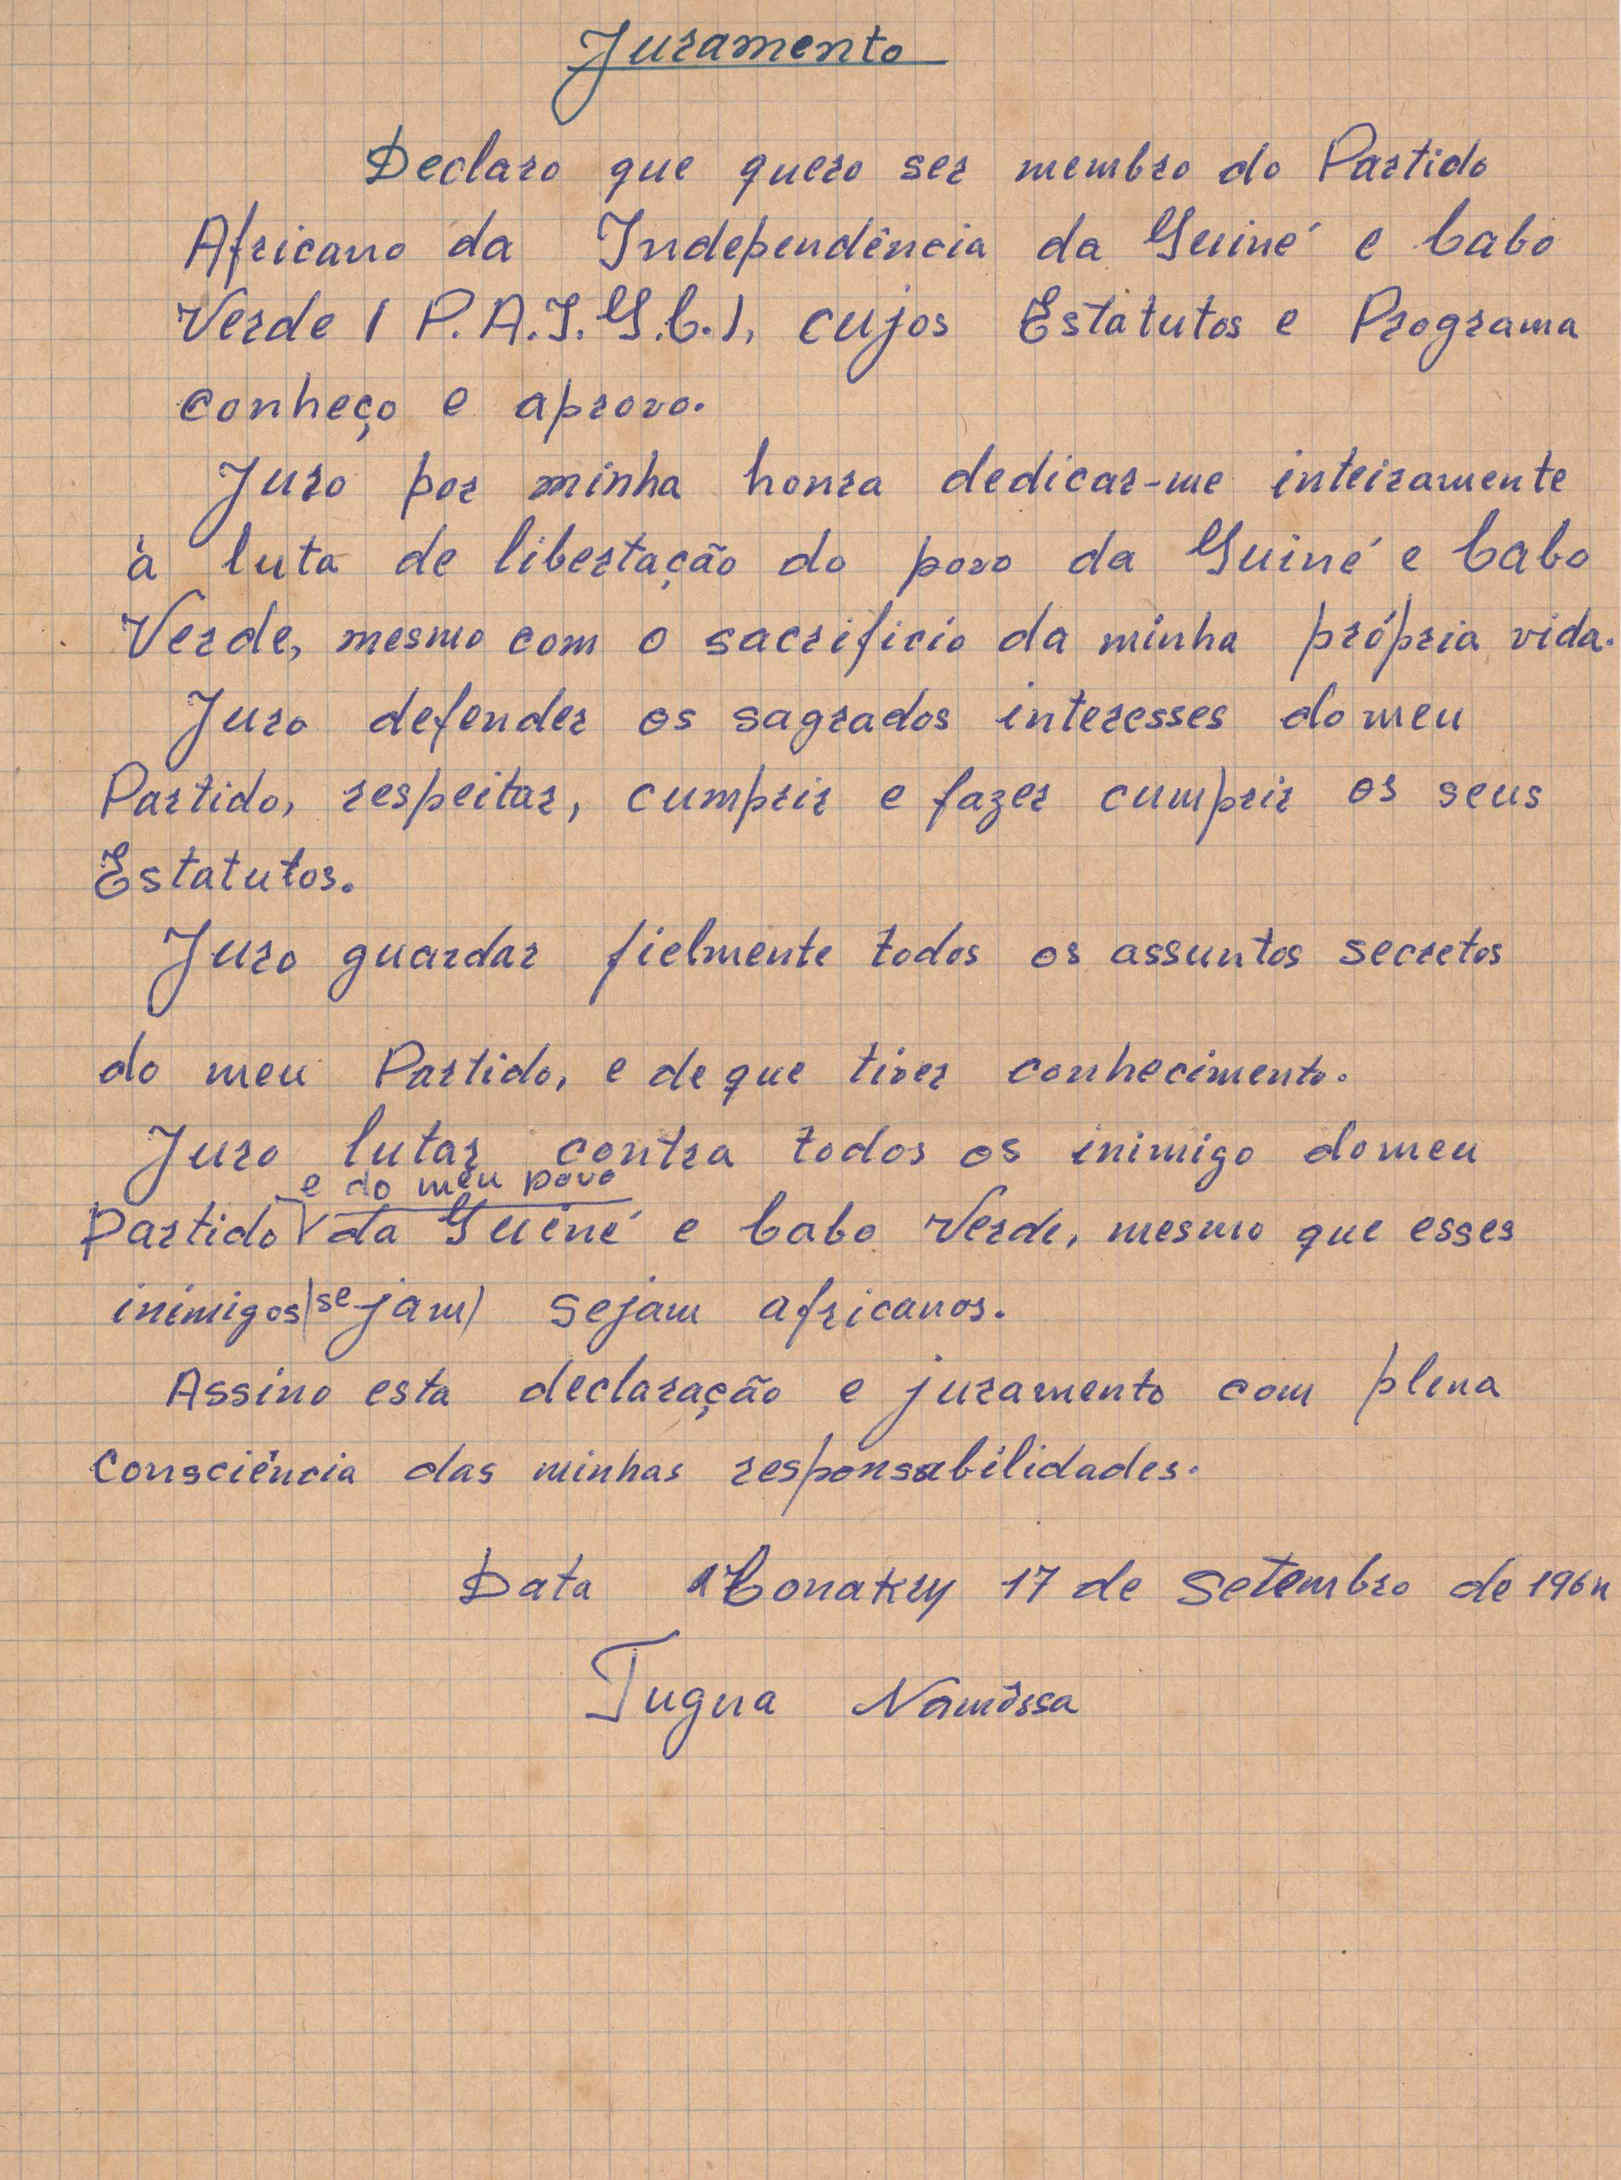 Juramento
Declaro que quero ser membro do Partido
Africano da Independência da Guiné e Cabo
Verde (P.A.I.G.C.), cujos Estatutos e Programa
conheço e aprovo.
Juro por minha honra dedicar-me inteiramente
à luta de libertação do povo da Guiné e Cabo
Verde, mesmo com o sacrificio da minha própria vida.
Juro defender os sagrados interesses do meu
Partido, respeitar, cumprir e fazer cumprir os seus
Estatutos.
Juro guardar fielmente todos os assuntos secretos
do meu Partido, e de que tiver conhecimento.
Juro lutar contra todos os inimigo do meu
e do meu povo
Partido da Guiné e Cabo Verde, mesmo que esses
inimigos (sejam) sejam africanos.
Assino esta declaração e juramento com plena
consciência das minhas responsabilidades.
Data Conakry 17 de Setembro de 1964
Tugna Namôssa